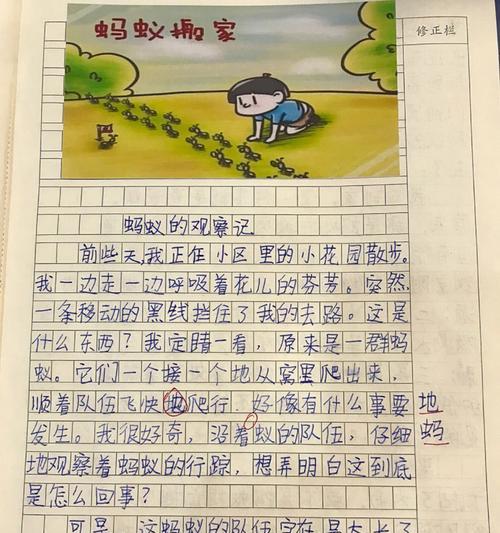 蚂蚁搬家
修正栏
蚂蚁的观察记
前些天,我正在小区里的小花园散步。
我一边走一边呼吸着花儿的芬芳。突然
一条移动的黑线挡住了我的去路。这是
什么东西?我定睛一看,原来是一群蚂
蚁。它们一个接一个地从窝里爬出来,
顺着队伍飞快地爬行.好像有什么事要 地
发生。我很好奇,沿着蚁的队伍,仔细 蚂
地观察着蚂蚁的行踪,想弄明白这到底
是怎么回事?
可是,这蚂蚁的队伍实在是太长了